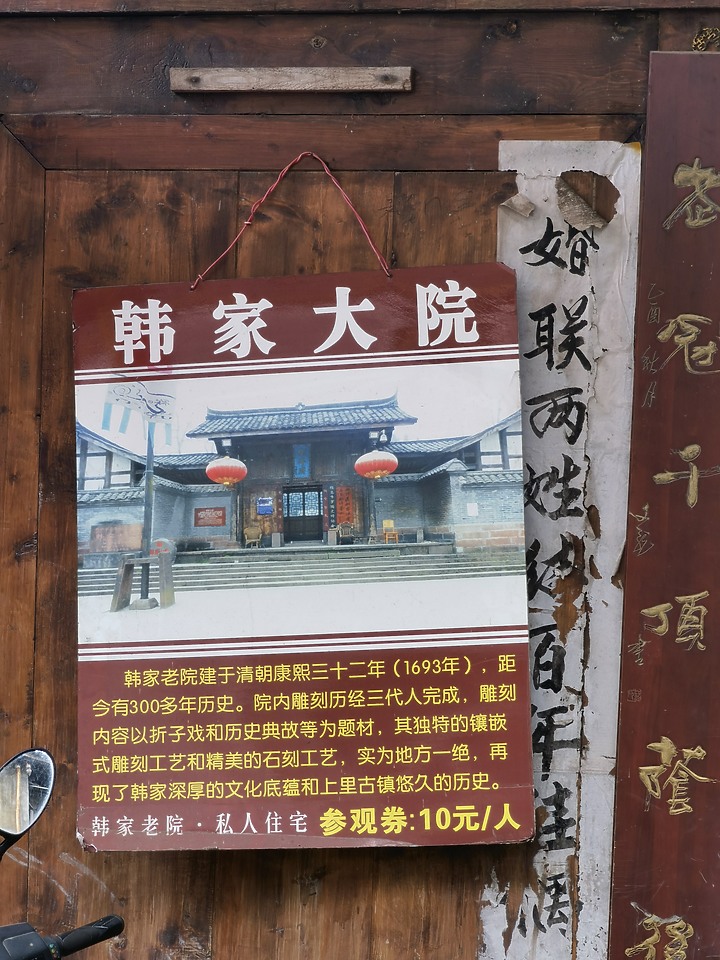 韩家大院
韩家老院建于清朝康熙三十二年（1693年），距
今有300多年历史。院内雕刻历经三代人完成，雕刻
内容以折子戏和历史典故等为题材，其独特的镶嵌
式雕刻工艺和精美的石刻工艺，实为地方一绝，再
现了韩家深厚的文化底蕴和上里古镇悠久的历史。
韩家老院·私人住宅 参观券:10元/人
婚联两姓结百年佳偶
冠千顶荫
乙酉秋月